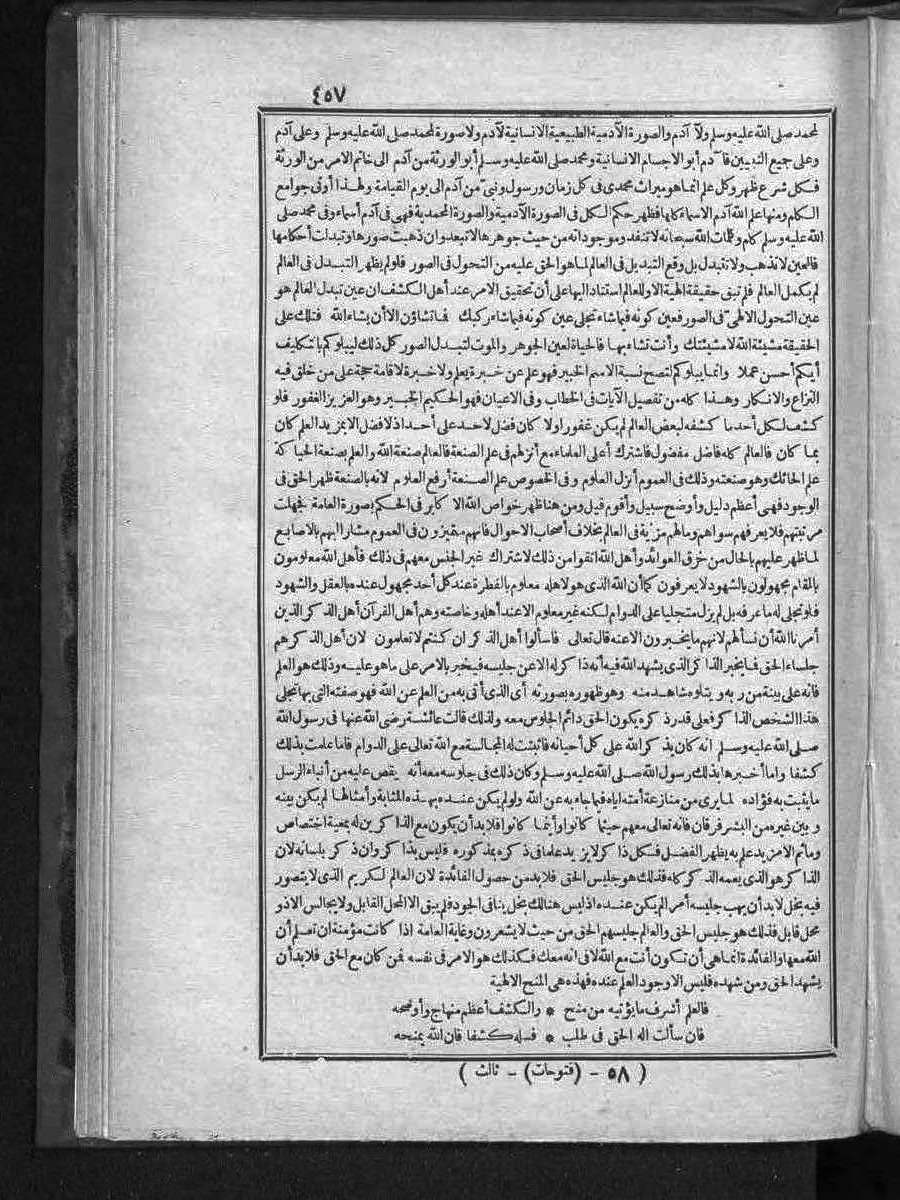 ٤٥٧
لمحمد صلى الله عليه وسلم ولآدم والصورة الآدمية الطبيعية الانسانية لآدم ولا صورة لمحمد صلى الله عليه وسلم وعلى آدم
وعلى جميع النبيين فآدم أبو الاجسام الانسانية ومحمد صلى الله عليه وسلم أبو الورثة من آدم الى خاتم الامر من الورثة
فكل شرع ظهر وكل علم انما هو ميراث محمدى فى كل زمان ورسول ونبى من آدم الى يوم القيامة ولهذا أوتى جوامع
الكلم ومنها علم الله آدم الاسماء كلها فظهر حكم الكل فى الصورة الآدمية والصورة المحمدية فهى فى آدم أسماء وفى محمد صلى
الله عليه وسلم كلم وكلمات الله سبحانه لا تنفد وموجوداته من حيث جوهرها لا تبعد وان ذهبت صورها وتبدلت أحكامها
فالعين لا تذهب ولا تتبدل بل وقع التبديل فى العالم لما هو الحق عليه من التحول فى الصور فلو لم يظهر التبدل فى العالم
لم يكمل العالم فلم تبق حقيقة الهية الا وللعالم استناد اليها على أن تحقيق الامر عند أهل الكشف ان عين تبدل العالم هو
عين التحول الالهى فى الصور فعين كونه فيما شاء تجلى عين كونه فيما شاء ركبك فما تشاؤن الا أن يشاء الله فتلك على
الحقيقة مشيئة الله لا مشيئتك وأنت تشاء بها فالحياة لعين الجوهر والموت لتبدل الصور كل ذلك ليبلوكم بالتكليف
أيكم أحسن عملا وانما يبلوكم لتصح نسبة الاسم الخبير فهو علم عن خبرة يعلم ولا خبرة لاقامة حجة على من خلق فيه
النزاع والانكار وهذا كله من تفصيل الآيات فى الخطاب وفى الاعيان فهو الحكيم الخبير وهو العزيز الغفور فلو
كشف لكل أحد ما كشفه لبعض العالم لم يكن غفورا ولا كان فضل لاحد على أحد اذ لا فضل الا بمزيد العلم كان
بما كان فالعالم كله فاضل مفضول فاشترك أعلى العلماء مع أنزلهم فى علم الصنعة فالعالم صنعة الله والعلم بصنعة الحياكة
علم الحائك وهو صنعته وذلك فى العموم أنزل العلوم وفى الخصوص علم الصنعة أرفع العلوم لانه بالصنعة ظهر الحق فى
الوجود فهى أعظم دليل وأوضح سبيل وأقوم قيل ومن هنا ظهر خواص الله الا كابر فى الحكم بصورة العامة فجهلت
مرتبتهم فلا يعرفهم سواهم وما لهم مزية فى العالم بخلاف أصحاب الاحوال فانهم متميزون فى العموم مشار اليهم بالاصابع
لما ظهر عليهم بالحال من خرق العوائد وأهل الله انفوا من ذلك لاشتراك غير الجنس معهم فى ذلك فأهل الله معلومون
بالمقام مجهولون بالشهود لا يعرفون كما أن الله الذى هو لاهله معلوم بالفطرة عند كل أحد مجهول عنده بالعقل والشهود
فلو تجلى له ما عرفه بل لم يزل متجليا على الدوام لكنه غير معلوم الا عند أهله وخاصته وهم أهل القرآن أهل الذكر الذين
أمرنا الله أن نسألهم لانهم ما يخبرون الا عنه قال تعالى فاسألوا أهل الذكر ان كنتم لا تعلمون لان أهل الذكر هم
جلساء الحق فما يخبر الذاكر الذى يشهد الله فيه أنه ذا كر له الا عن جليسه فيخبر بالامر على ما هو عليه وذلك هو العلم
فانه على بينة من ربه ويتلوه شاهد منه وهو ظهوره بصورته أى الذى أتى به من العلم عن الله فهو صفته التى بها تجلى
هذا الشخص الذاكر فعلى قدر ذكره يكون الحق دائم الجلوس معه ولذلك قالت عائشة رضى الله عنها فى رسول الله
صلى الله عليه وسلم انه كان يذكر الله على كل أحيانه فأثبتت له المجالسة مع الله تعالى على الدوام فاما علمت بذلك
كشفا واما أخبرها بذلك رسول الله صلى الله عليه وسلم وكان ذلك فى جلوسه معه أنه يقص عليه من أنباء الرسل
ما يثبت به فؤاده لما يرى من منازعة أمته اياه فيما جاء به عن الله ولو لم يكن عنده بهذه المثابة وأمثالها لم يكن بينه
وبين غيره من البشر فرقان فانه تعالى معهم حيثما كانوا وأينما كانوا فلا بد أن يكون مع الذاكرين له بمعية اختصاص
وما ثم الا مزيد علم به يظهر الفضل فكل ذا كر لا يزيد علما فى ذكره بمذكوره فليس بذا كر وان ذكر بلسانه لان
الذاكر هو الذى يعمه الذكر كله فذلك هو جليس الحق فلا بد من حصول الفائدة لان العالم الكريم الذى لا يتصور
فيه بخل لا بد أن يهب جليسه أمرا لم يكن عنده اذ ليس هنالك بخل ينافى الجود فلم يبق الا المحل القابل ولا يجالس الا ذو
محل قابل فذلك هو جليس الحق والعالم جليسهم الحق من حيث لا يشعرون وغاية العامة اذا كانت مؤمنة ان تعلم أن
الله معها والفائدة انما هى أن تكون أنت مع الله لا فى انه معك فكذلك هو الامر فى نفسه فمن كان مع الحق فلا بد أن
يشهد الحق ومن شهده فليس الا وجود العلم عنده فهذه هى المنح الالهية
فالعلم أشرف ما يؤتيه من منح * والكشف أعظم منهاج وأوضحه
فان سألت اله الحق فى طلب * فسله كشفا فان الله يمنحه
( ٥٨ - (فتوحات) - ثالث )